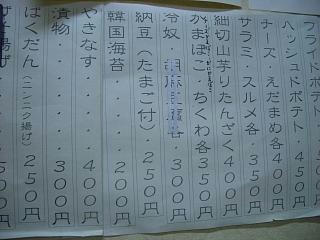 フライドポテト・
ヘッシュドポテト・
ナーズ・えだまめ各４
サラミ・スルメ各・３５０
細切山芋りたんざく４００円
かまぼこ・ちくわ各３５０円
冷奴・・３００円
納豆（たまご付）・２５０円
韓国海苔・・・・・２００円
やきなす・・・・・４００円
漬物・・・・・・・３００円
ばくだん（ニンニク揚げ）２５０円
５００円